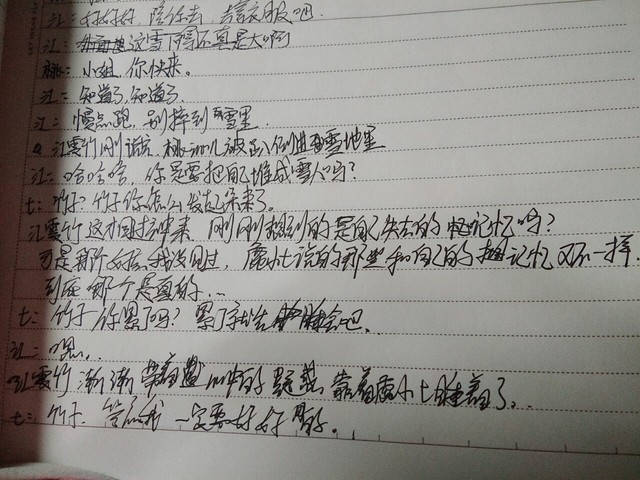 江：好好好，陪你去，拿衣服吧.
江：这雪下得还真是大啊
桃：小姐，你快来。
江：知道了，知道了.
江：慢点跑，别摔到雪里.
江雲竹刚说完，桃就被趴倒进雪地里
江：哈哈哈，你是要把自己堆成雪人吗？
七：竹子？竹子你怎么发起呆来了。
江雲竹这才回过神来，刚刚想到的是自己失去的记忆吗？
可是那个女孩我没见过，小七说的那些和自己的记忆又不一样.
到底那个是真的...
七：竹子你累了吗？累了就先睡会吧、
江：嗯..
江雲竹渐渐带着心中的疑惑靠着小七睡着了...
七：竹子，答应我一定要好好的。